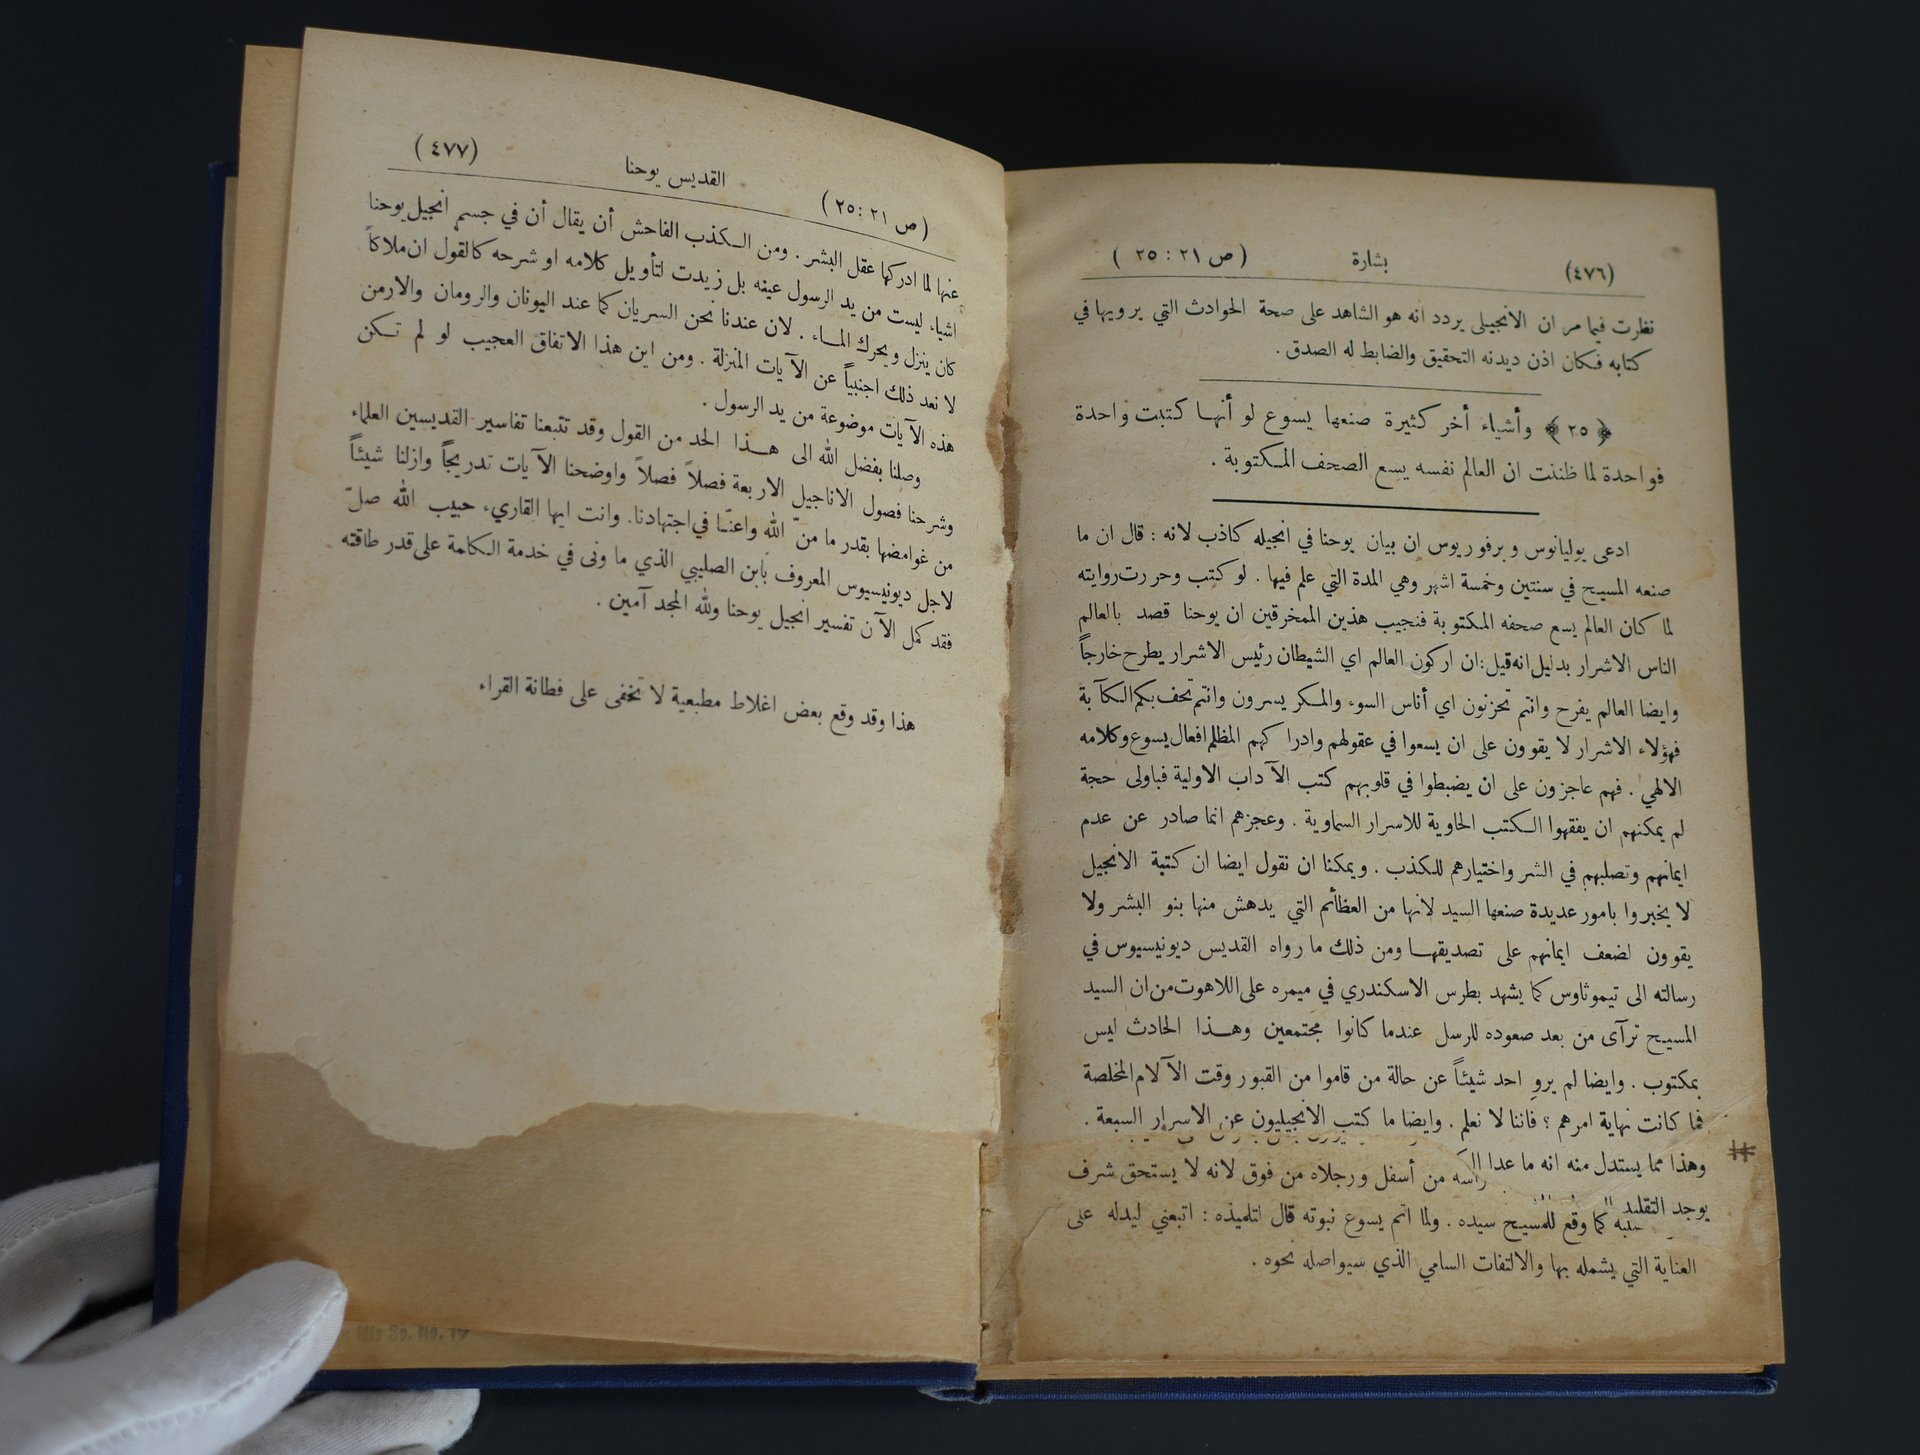 (٤٧٦) بشارة (ص ٢١: ٢٥)
نظرت فيما مر ان الانجيلي يردد انه هو الشاهد على صحة الحوادث التي يرويها في
كتابه فكان اذن ديدنه التحقيق والضابط له الصدق.
﴿٢٥﴾ وأشياء أخر كثيرة صنعها يسوع لو أنها كتبت واحدة
فواحدة لما ظننت ان العالم نفسه يسع الصحف المكتوبة.
ادعى يوليانوس وبرفوريوس ان بيان يوحنا في انجيله كاذب لانه: قال ان ما
صنعه المسيح في سنتين وخمسة اشهر وهي المدة التي علم فيها. لو كتب وحررت روايته
لما كان العالم يسع صحفه المكتوبة فنجيب هذين الممخرقين ان يوحنا قصد بالعالم
الناس الاشرار بدليل انه قيل: ان اركون العالم اي الشيطان رئيس الاشرار يطرح خارجاً
وايضا العالم يفرح وانتم تحزنون اي أناس السوء والمكر يسرون وانتم تحف بكم الكآبة
فهؤلاء الاشرار لا يقوون على ان يسعوا في عقولهم وادراكهم المظلم افعال يسوع وكلامه
الالهي. فهم عاجزون على ان يضبطوا في قلوبهم كتب الآداب الاولية فباولى حجة
لم يمكنهم ان يفقهوا الكتب الحاوية للاسرار السماوية. وعجزهم انما صادر عن عدم
ايمانهم وتصلبهم في الشر واختيارهم للكذب. ويمكنا ان نقول ايضا ان كتبة الانجيل
لا يخبروا بامور عديدة صنعها السيد لانها من العظائم التي يدهش منها بنو البشر ولا
يقوون لضعف ايمانهم على تصديقها ومن ذلك ما رواه القديس ديونيسيوس في
رسالته الى تيموثاوس كما يشهد بطرس الاسكندري في ميمره على اللاهوت من ان السيد
المسيح ترآى من بعد صعوده للرسل عندما كانوا مجتمعين وهذا الحادث ليس
بمكتوب. وايضا لم يروِ احد شيئاً عن حالة من قاموا من القبور وقت الآلام المخلصة
فما كانت نهاية امرهم؟ فاننا لا نعلم. وايضا ما كتب الانجيليون عن الاسرار السبعة.
وهذا مما يستدل منه انه ما عدا
راسه من أسفل ورجلاه من فوق لانه لا يستحق شرف
يوجد التقليد
كما وقع للمسيح سيده. ولما اتم يسوع نبوته قال لتلميذه: اتبعني ليدله على
العناية التي يشمله بها والالتفات السامي الذي سيواصله نحوه.
(ص ٢١: ٢٥) القديس يوحنا (٤٧٧)
عنها لما ادركها عقل البشر. ومن الكذب الفاحش أن يقال أن في جسم انجيل يوحنا
اشياء ليست من يد الرسول عينه بل زيدت لتأويل كلامه او شرحه كالقول ان ملاكاً
كان ينزل ويحرك الماء. لان عندنا نحن السريان كما عند اليونان والرومان والارمن
لا نعد ذلك اجنبياً عن الآيات المنزلة. ومن اين هذا الاتفاق العجيب لو لم تكن
هذه الآيات موضوعة من يد الرسول.
وصلنا بفضل الله الى هذا الحد من القول وقد تتبعنا تفاسير القديسين العلماء
وشرحنا فصول الاناجيل الاربعة فصلاً فصلاً واوضحنا الآيات تدريجاً وازلنا شيئاً
من غوامضها بقدر ما منّ الله واعنّا في اجتهادنا. وانت ايها القاريء حبيب الله صلّ
لاجل ديونيسيوس المعروف بأبن الصليبي الذي ما ونى في خدمة الكلمة على قدر طاقته
فقد كمل الآن تفسير انجيل يوحنا ولله المجد آمين.
هذا وقد وقع بعض اغلاط مطبعية لا تخفى على فطانة القراء